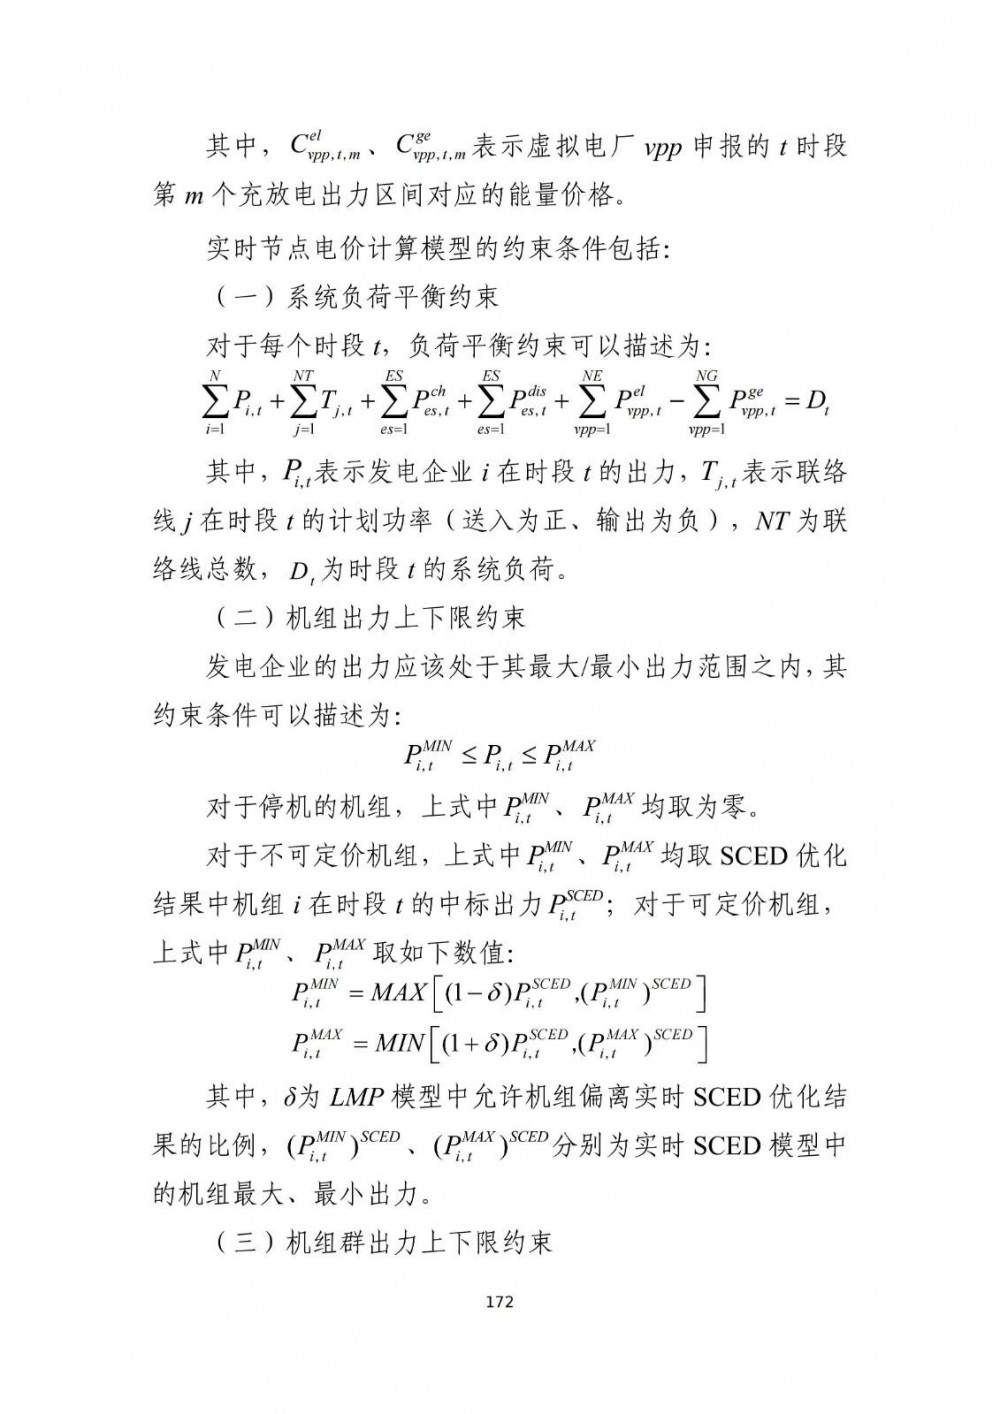 其中，$C_{vpp,t,m}^{el}$、$C_{vpp,t,m}^{ge}$ 表示虚拟电厂 vpp 申报的 t 时段
第 m 个充放电出力区间对应的能量价格。
实时节点电价计算模型的约束条件包括：
（一）系统负荷平衡约束
对于每个时段 t，负荷平衡约束可以描述为：
$\sum_{i=1}^{N} P_{i,t} + \sum_{j=1}^{NT} T_{j,t} + \sum_{es=1}^{ES} P_{es,t}^{ch} + \sum_{es=1}^{ES} P_{es,t}^{dis} + \sum_{vpp=1}^{NE} P_{vpp,t}^{el} - \sum_{vpp=1}^{NG} P_{vpp,t}^{ge} = D_t$
其中，$P_{i,t}$表示发电企业 i 在时段 t 的出力，$T_{j,t}$ 表示联络
线 j 在时段 t 的计划功率（送入为正、输出为负），NT 为联
络线总数，$D_t$ 为时段 t 的系统负荷。
（二）机组出力上下限约束
发电企业的出力应该处于其最大/最小出力范围之内，其
约束条件可以描述为：
$P_{i,t}^{MIN} \leq P_{i,t} \leq P_{i,t}^{MAX}$
对于停机的机组，上式中 $P_{i,t}^{MIN}$、$P_{i,t}^{MAX}$ 均取为零。
对于不可定价机组，上式中 $P_{i,t}^{MIN}$、$P_{i,t}^{MAX}$ 均取 SCED 优化
结果中机组 i 在时段 t 的中标出力 $P_{i,t}^{SCED}$；对于可定价机组，
上式中 $P_{i,t}^{MIN}$、$P_{i,t}^{MAX}$ 取如下数值：
$P_{i,t}^{MIN} = MAX\left[(1-\delta)P_{i,t}^{SCED},(P_{i,t}^{MIN})^{SCED}\right]$
$P_{i,t}^{MAX} = MIN\left[(1+\delta)P_{i,t}^{SCED},(P_{i,t}^{MAX})^{SCED}\right]$
其中，δ为 LMP 模型中允许机组偏离实时 SCED 优化结
果的比例，$(P_{i,t}^{MIN})^{SCED}$、$(P_{i,t}^{MAX})^{SCED}$分别为实时 SCED 模型中
的机组最大、最小出力。
（三）机组群出力上下限约束
172